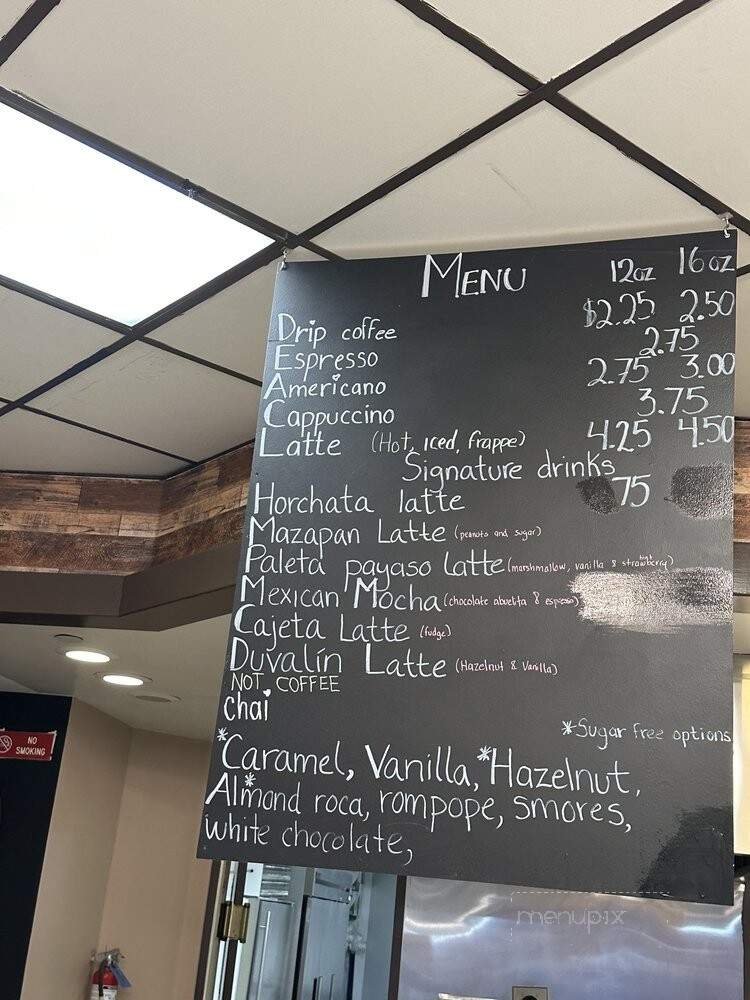 MENU 12oz 16oz
Drip coffee $2.25 2.50
Espresso 2.75
Americano 2.75 3.00
Cappuccino 3.75
Latte (Hot, iced, frappe) 4.25 4.50
Signature drinks
Horchata latte 75
Mazapan Latte (peanuts and sugar)
Paleta payaso Latte (marshmallow, vanilla & strawberry)
Mexican Mocha (chocolate abuelita & espresso)
Cajeta Latte (fudge)
Duvalín Latte (Hazelnut & Vanilla)
NOT COFFEE
chai
*Sugar free options
*Caramel, Vanilla, *Hazelnut,
*Almond roca, rompope, smores,
white chocolate,
NO
SMOKING
menupix